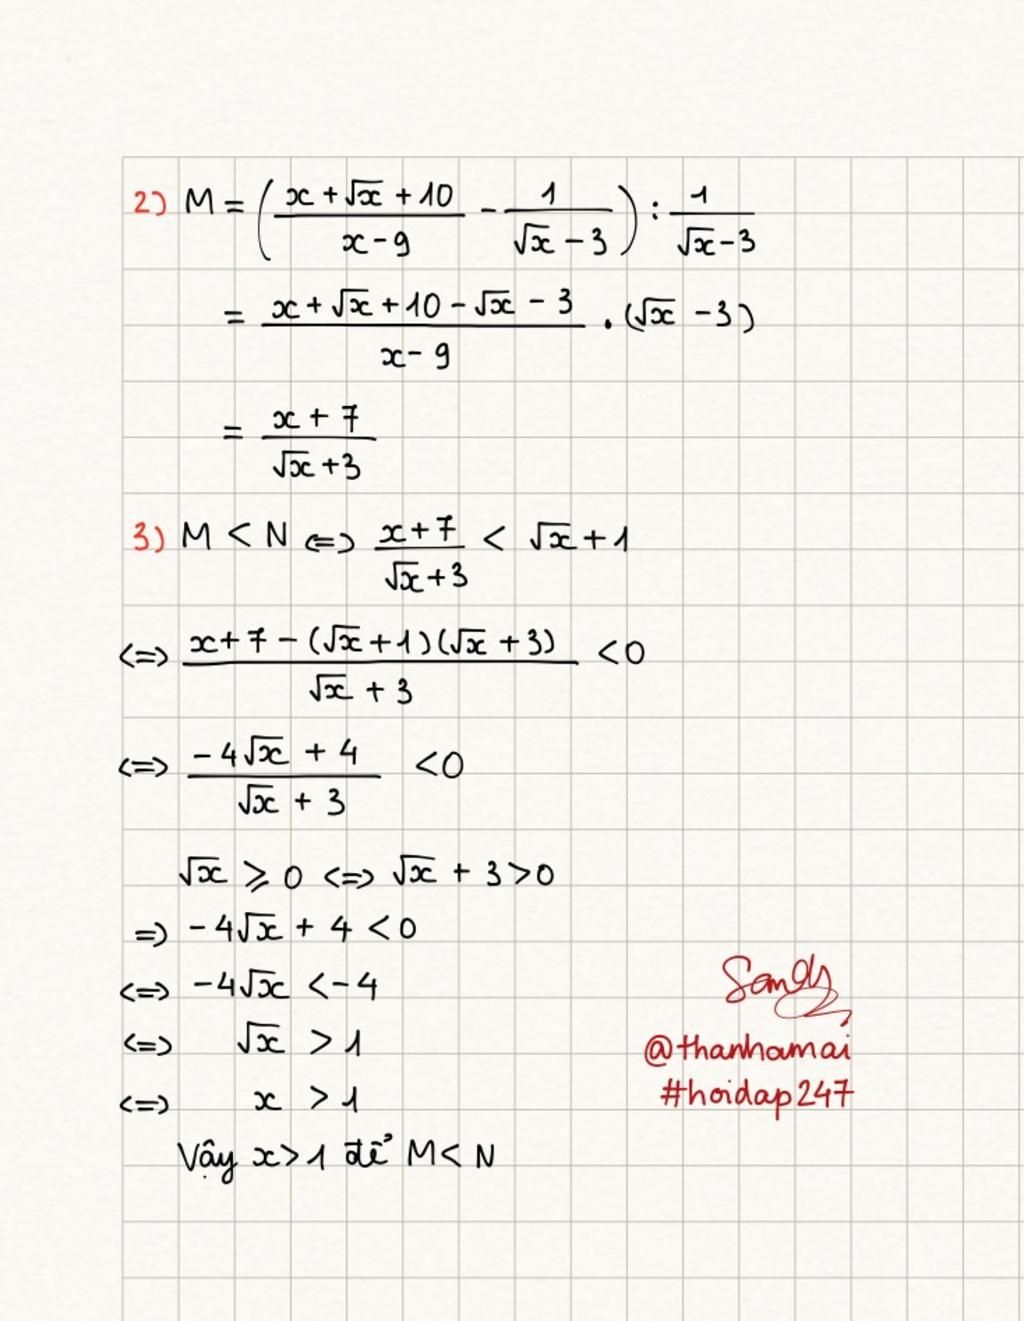 2) M = ( (x + √x + 10)/(x - 9) - 1/(√x - 3) ) : 1/(√x - 3)
= (x + √x + 10 - √x - 3)/(x - 9) . (√x - 3)
= (x + 7)/(√x + 3)
3) M < N <=> (x + 7)/(√x + 3) < √x + 1
<=> (x + 7 - (√x + 1)(√x + 3))/(√x + 3) < 0
<=> (-4√x + 4)/(√x + 3) < 0
√x ⩾ 0 <=> √x + 3 > 0
=> -4√x + 4 < 0
<=> -4√x < -4
<=> √x > 1
<=> x > 1
Vậy x > 1 để M < N
Sandy
@thanhamai
#hoidap247